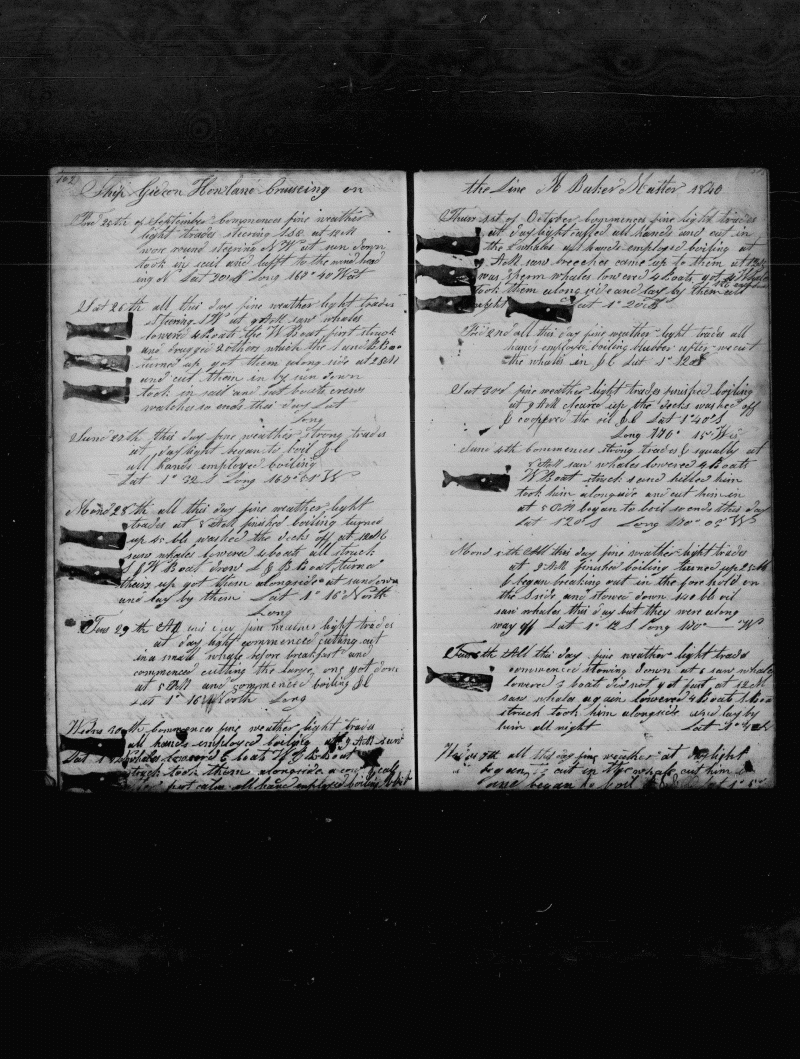 102
Ship Gideon Howland Cruiseing on
Frid 25th of September Commences fine weather
light trades steering S.S.E. at 12 M
wore round steering N W at sun down
took in sail and lufft to the wind head
ing of Lat 30 S Long 168° 40 West
Sat 26th all this day fine weather light trades
steering at saw whales
lowered 4 Boats the W Boat first struck
and 2 others which the L and B Boa
turned up got them along side at 2
and cut them in by sun down
took in sail and set boats crews
watches so ends this day Lat
Long
Sund 27th this day fine weather strong trades
at day light began to boil
all hands employed boiling
Lat 1° 22 S Long W
Mond 28th all this day fine weather light
trades at finished boiling turned
up washed the decks off at
saw whales lowered 4 boats all struck
W Boat L & B Boat turned
theirs up got them alongside at sundown
and lay by them Lat 1° 16 North
Long
Tues 29th All this day fine weather light trades
at day light commenced cutting cut
in a small whale before breakfast and
commenced cutting the large one got done
at 5 PM and commenced boiling
Lat 1° 16 North Long
Wedns 30th Commences fine weather light trades
all hands employed boiling at 9 AM saw
whales lowered Boats W & B Boat
struck took them alongside
calm all hands employed boiling
the Line M Baker Master 1840
Thurs 1st of October Commences fine light trades
at day light called all hands and cut in
the 2 whales all hands employed boiling at
AM saw breeches came up to them at
was sperm whales lowered 4 Boats got
took them along side and lay by them all
night Lat 1° 20
Frid 2nd all this day fine weather light trades all
hands employed boiling blubber after we cut
the whales in Lat 1° 12 S
Sat 3rd fine weather light trades finished boiling
at 9 AM cleared up the decks washed off
& coopered the oil Lat 1° 40 S
Long 170° 15 W
Sund 4th commences strong trades & squally at
AM saw whales lowered 4 Boats
W Boat struck and killed him
took him alongside and cut him in
at 5 PM began to boil so ends this day
Lat Long 170° W
Mond 5th All this day fine weather light trades
at AM finished boiling turned up
& began breaking out in the fore hold on
the S side and stowed down bb oil
saw whales this day but they were along
way off Lat 1° 12 S Long 170° W
Tues 6th All this day fine weather light trades
commenced stowing down at saw whales
lowered 3 boats did not get fast at 12 M
saw whales again lowered 4 Boats
struck took him alongside and lay by
him all night Lat
7th all this day fine weather at day light
began to cut in the whale cut him
and began to boil Lat